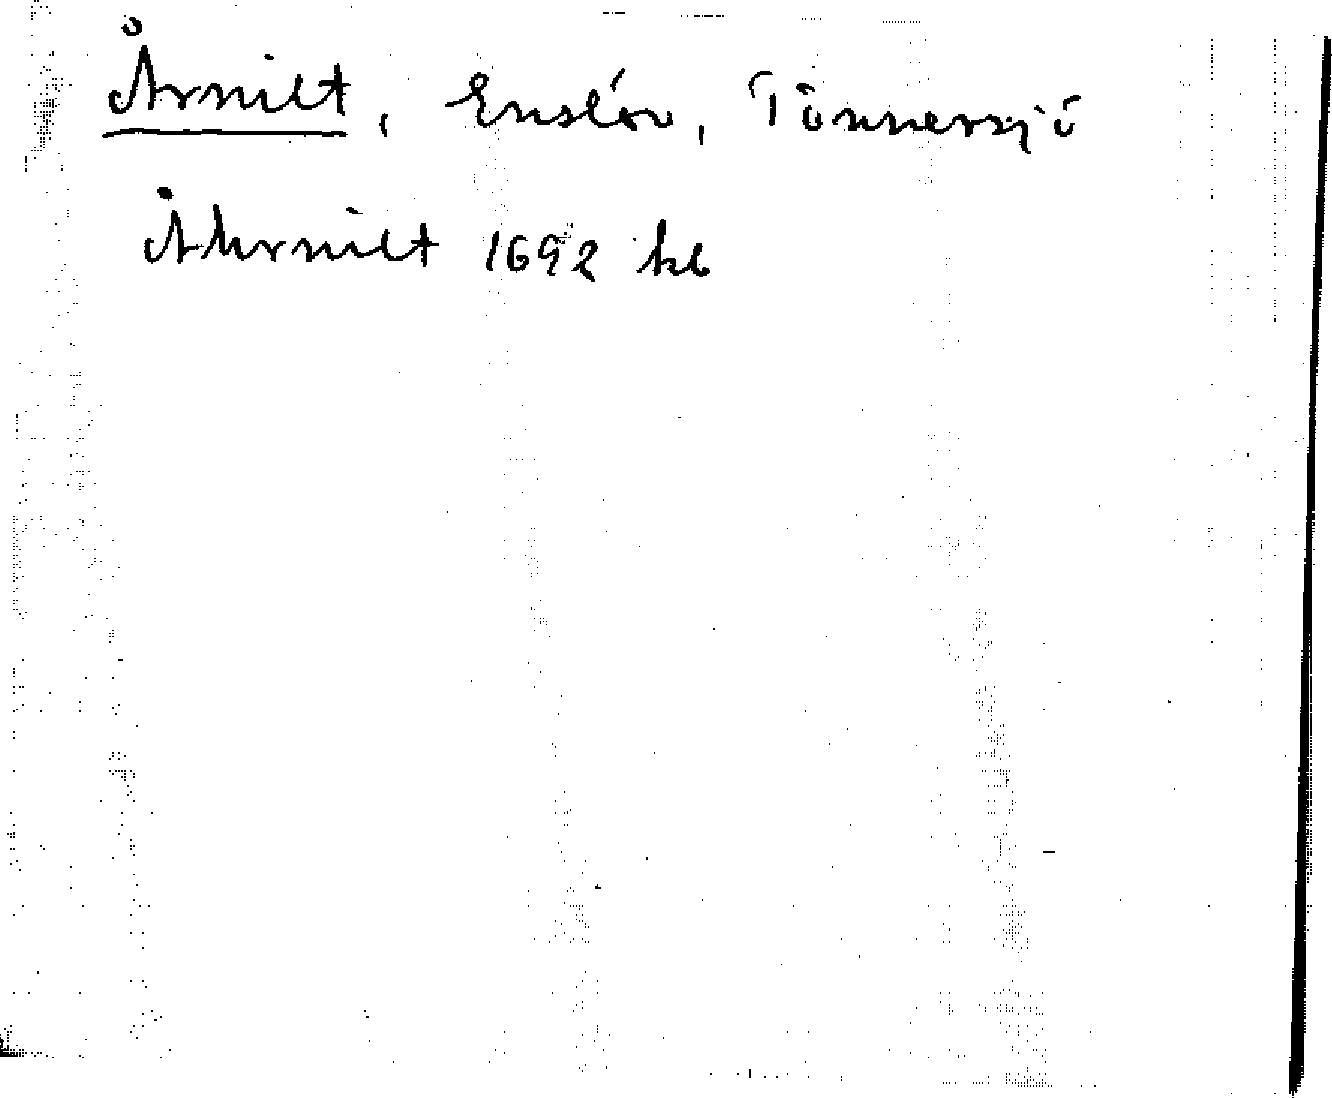 Årnilt, Enslöv, Tönnersjö
Åhrnilt 1692 kb